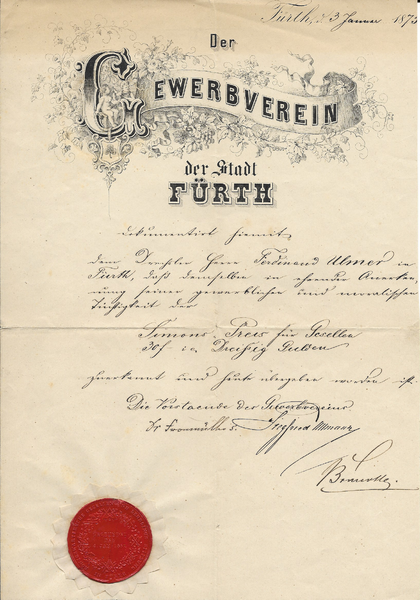 Fürth, d. 3 Januar 1873
Der
GEWERBVEREIN
der Stadt
FÜRTH
dokumentirt hiemit
dem Drechsler Herr Ferdinand Ulmer in
Fürth, daß demselben in ehrender Anerken-
nung seiner gewerblichen und moralischen
Tüchtigkeit der
Simons-Preis für Gesellen
30 f i.e. Dreißig Gulden
zuerkannt und heute übergeben worden ist.
Die Vorstaende des Gewerbvereins
Dr Fronmüller s.